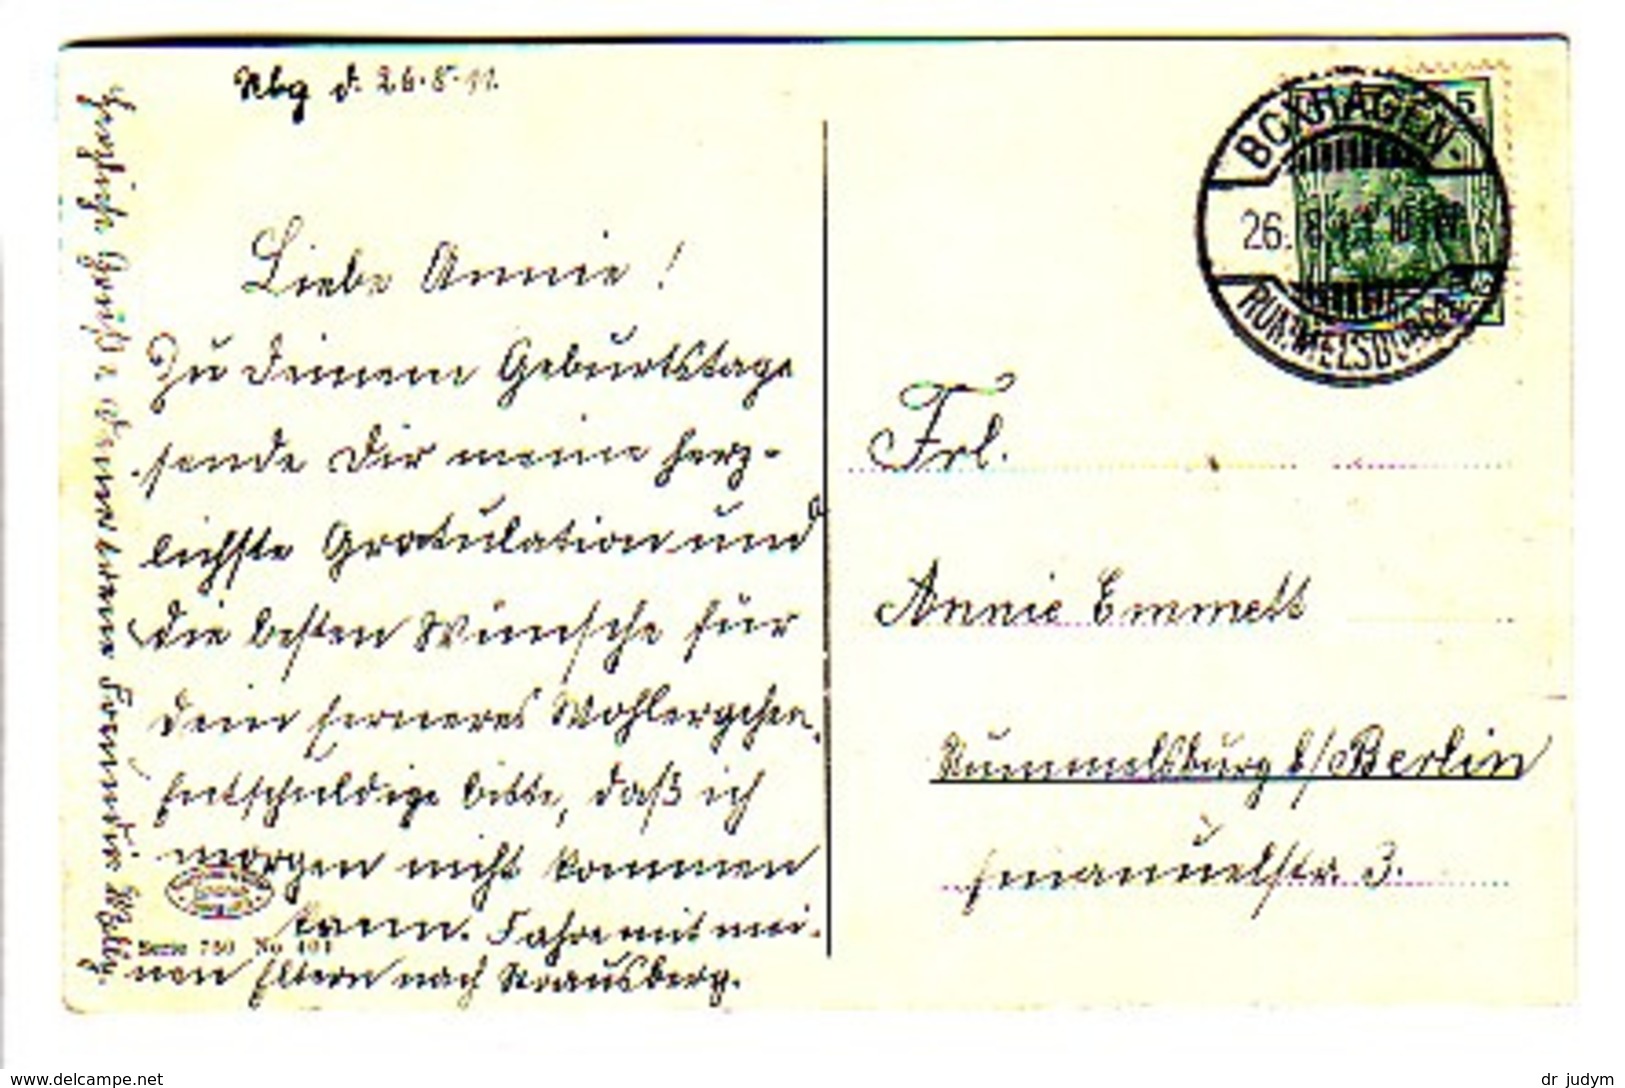 Rbg d. 26.8.11.
Liebe Annie!
Zu Deinem Geburtstage
sende Dir meine herz-
lichste Gratulation und
die besten Wünsche für
Dein ferneres Wohlergehen.
Entschuldige bitte, daß ich
morgen nicht kommen
kann. Fahre mit mei-
nen Eltern nach Strausberg.
Herzliche Grüße v. Deiner treuen Freundin Welly.
Serie 760 No 401
BOXHAGEN-
26. 8. 11 10
RUMMELSBURG
5
Frl.
Annie Emmett
Rummelsburg b/Berlin
Emanuelstr. 3.
delcampe.net
dr_judym